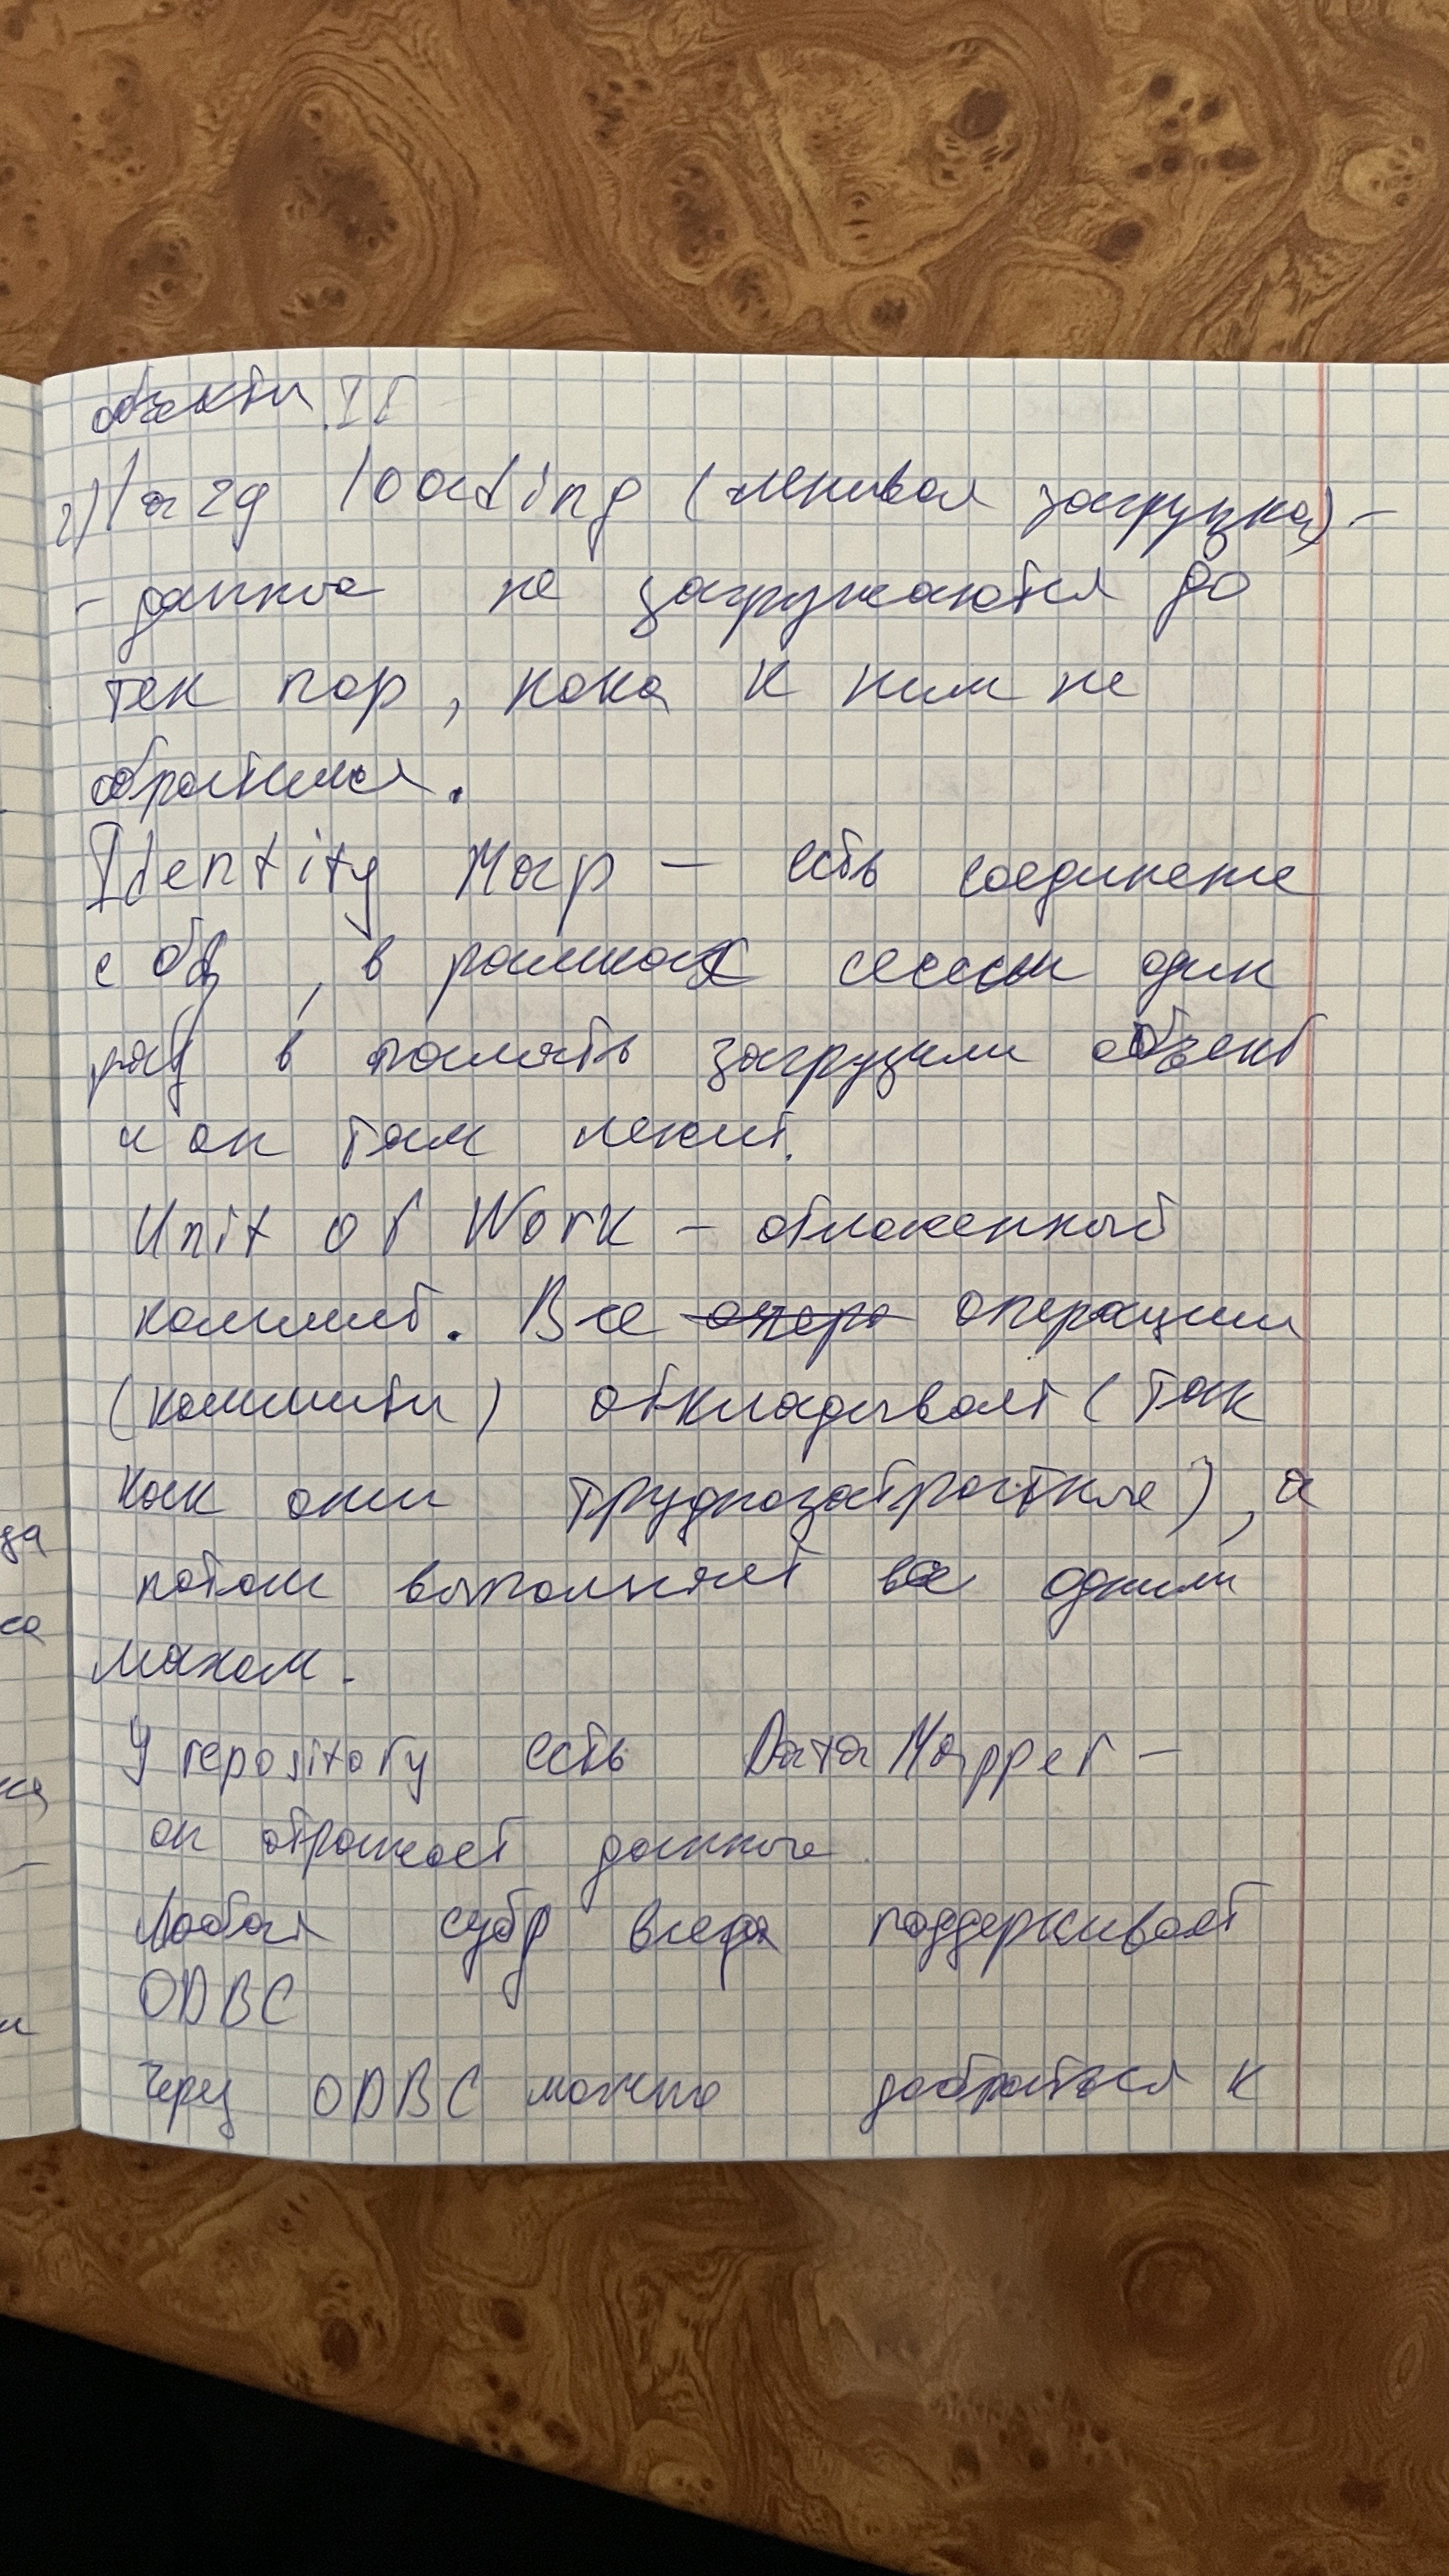 объекты.
2) lazy loading (ленивая загрузка) -
- данные не загружаются до
тех пор, пока к ним не
обратимся.
Identity Map - есть соединение
с бд, в рамках сессии один
раз в память загрузили объект
и он там лежит.
Unit of Work - отложенный
коммит. Все опера операции
(коммиты) откладывает (так
как они труднозатратные), а
потом выполняет все одним
махом.
У repository есть DataMapper -
он отражает данные
Любая субд всегда поддерживает
ODBC
Через ODBC можно добраться к